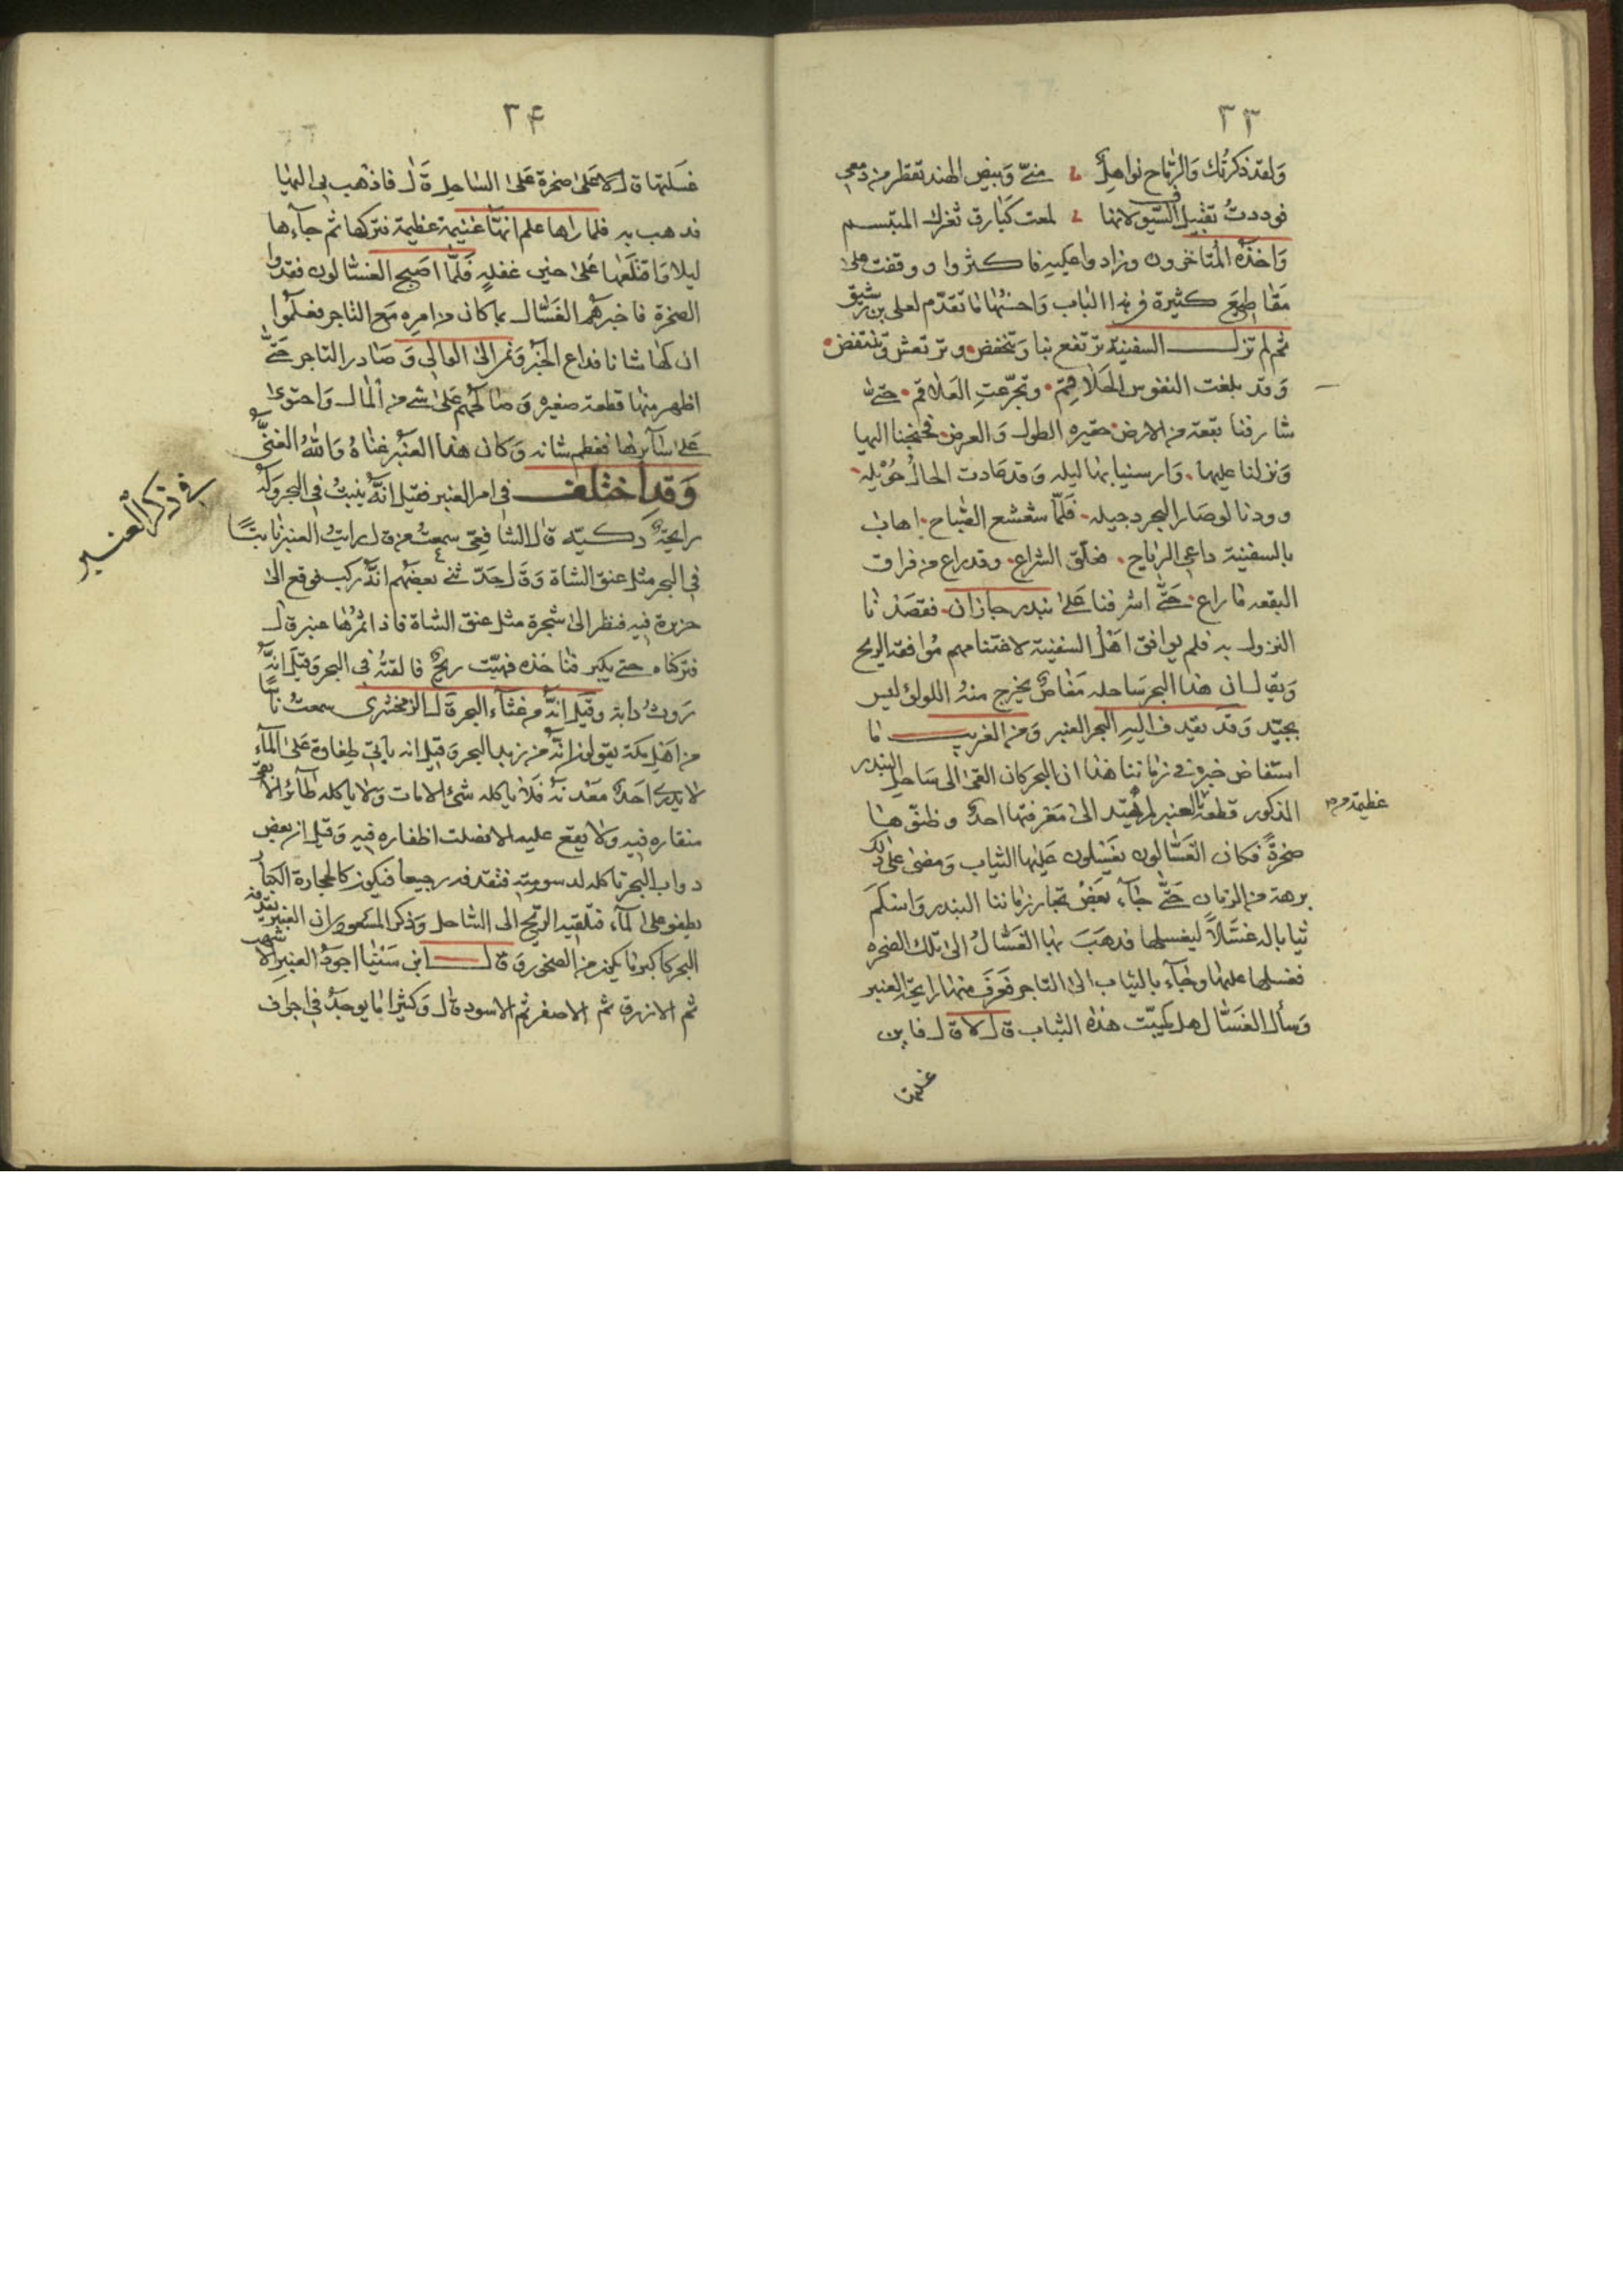 ٣٣
ولقد ذكرتك والرماح نواهل منى وبيض الهند تقطر من دمي
فوددت تقبيل السيوف لانها لمعت كبارق ثغرك المتبسم
واخذه المتاخرون وزادوا عليه فاكثروا ووقفت على
مقاطيع كثيرة في هذا الباب واحسنها ما تقدم لعلي بن رشيق
ثم لم تزل السفينة ترتفع بنا وتنخفض وترتعش وتنتفض
وقد بلغت النفوس الحلاقم وتجرعت العلاقم حتى
شارفنا بقعة من الارض حقيره الطول والعرض فجنحنا اليها
ونزلنا عليها وارسينا بها ليله وقد عادت الحال حويله
وودنا لو صار البحر دجيله فلما شعشع الصباح اهاب
بالسفينة داعي الرياح فخلق الشراع وقد راع من فراق
البقعه ما راع حتى اشرفنا على بندر جازان فقصدنا
النزول به فلم يوافق اهل السفينة لاغتنامهم موافقة الريح
ويقال ان هذا البحر ساحله مغاص يخرج منه اللولؤ ليس
بجيد وقد يقذف اليه البحر العنبر ومن الغريب ما
استفاض خبره في زماننا هذا ان البحر كان القى الى ساحل البندر
المذكور قطعة العنبر لم يهتد الى معرفتها احد وظنوها
عظيمة من
صخرة فكان الغسالون يغسلون عليها الثياب ومضى على ذلك
برهة من الزمان حتى جاء بعض تجار زماننا البندر واستكم
ثيابا له غسالا ليغسلها فذهب بها الغسال الى تلك الصخره
فغسلها عليها وجاء بالثياب الى التاجر فعرف منها رايحة العنبر
وسأل الغسال هل بخرت هذه الثياب قال لا قال فاين
غسلتها
٣٤
غسلتها قال على صخرة على الساحل قال فاذهب بي اليها
فذهب به فلما راها علم انها غنيمة عظيمة فتركها ثم جاءها
ليلا واقتلعها على حين غفله فلما اصبح الغسالون فقدوا
الصخرة فاخبرهم الغسال بما كان من امره مع التاجر فعلموا
ان لها شانا فذاع الخبر ونمى الى الوالي وصادر التاجر حتى
اظهر منها قطعة صغيره وصالحهم على شيء من المال واحتوى
على سائرها فعظم شانه وكان هذا العنبر غناه والله الغني
وقد اختلف في امر العنبر فقيل انه ينبت في البحر وله
في ذكر العنبر
رايحة ذكيه قال الشافعي سمعت من قال رايت العنبر نابتا
في البحر مثل عنق الشاة وقال حدثني بعضهم انه ركب فوقع الى
جزيرة فيه فنظر الى شجرة مثل عنق الشاة فاذا ثمرها عنبر قال
فتركناه حتى يكبر فناخذه فهبت ريح فالقته في البحر وقيل انه
روث دابة وقيل انه من غثاء البحر قال الزمخشري سمعت ناسا
من اهل مكة يقولون انه من زبد البحر وقيل انه ياتي طفاوة على الماء
لا يدرى احد معدنه فلا ياكله شئ الا مات ولا ياكله طائر الا بقي
منقاره فيه ولا يقع عليه الا نصلت اظفاره فيه وقيل ان بعض
دواب البحر تاكله لدسومته فتقذفه رجيعا فيكون كالحجارة الكبار
يطفو على الماء فتلقيه الريح الى الساحل وذكر المسعودي ان العنبر يقذفه
البحر كاكبر ما يكون من الصخور وقال ابن سينا اجود العنبر الاشهب
ثم الازرق ثم الاصفر ثم الاسود قال وكثيرا ما يوجد في اجواف